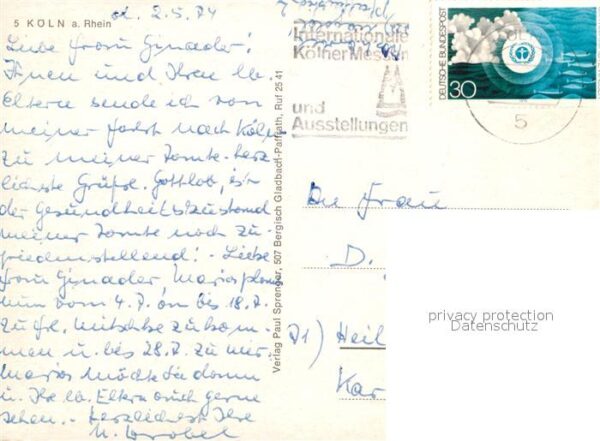 5 KÖLN a. Rhein
d. 2.5.74
Liebe Frau Gmader!
Ihnen und Ihren lb.
Eltern sende ich von
meiner Fahrt nach Köln
zu meiner Tante herz
lichste Grüße. Gottlob, ist
der Gesundheitszustand
meiner Tante noch zu-
friedenstellend! - Liebe
Frau Gmader, Maria plant
nun vom 4.7. an bis 18.7.
zu Frl. Nitschke zu kom-
men u. bis 28.7. zu mir.
Maria möchte Sie dann
u. Ihre lb. Eltern auch gerne
sehen. - Herzlichst Ihre
M. Wrobel
Verlag Paul Sprenger, 507 Bergisch Gladbach-Paffrath, Ruf 25 41
Internationale
Kölner Messen
und
Ausstellungen
DEUTSCHE BUNDESPOST
30
5
An Frau
D.
71) Heil
Kar
privacy protection
Datenschutz